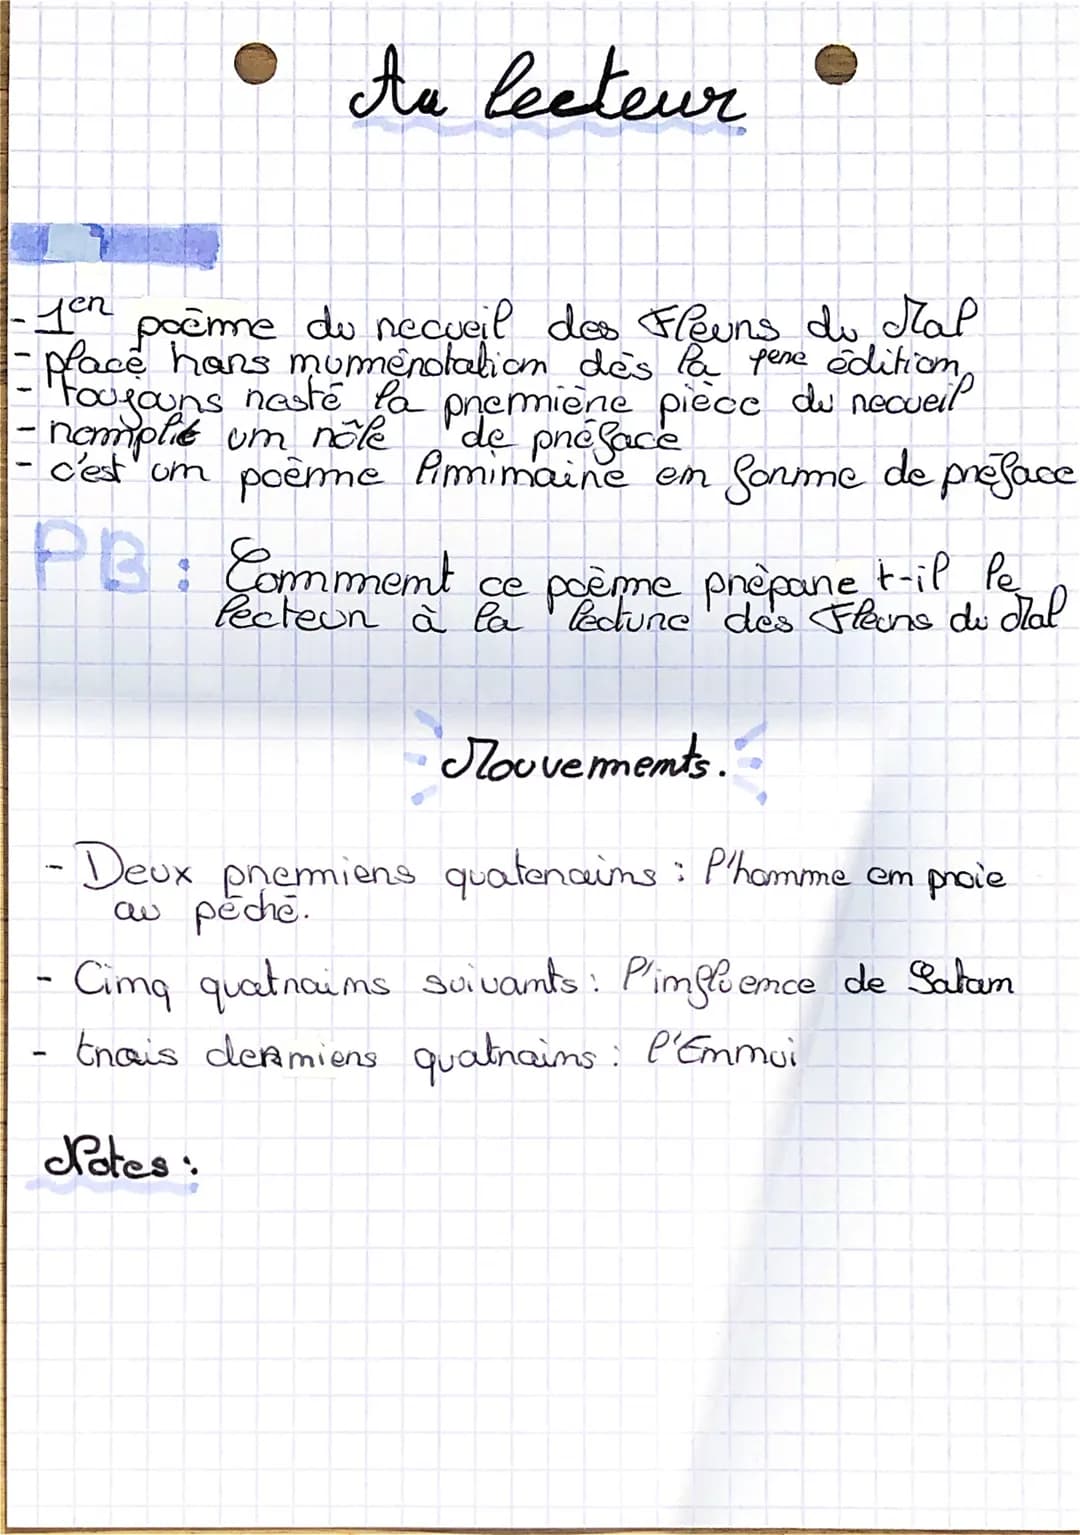 Au lecteur
- 1er poème du recueil des Fleurs du Mal
- placé hors numérotation dès la 1ere édition,
- Toujours resté la première pièce du recueil
- remplit un rôle de préface
- c'est un poème liminaire en forme de préface
PB : Comment ce poème prépare t-il le
lecteur à la lecture des Fleurs du Mal
Mouvements.
- Deux premiers quaterains : l'homme en proie
au péché.
- Cinq quatrains suivants : l'influence de Satan
- trois derniers quatrains : l'Ennui
Notes :